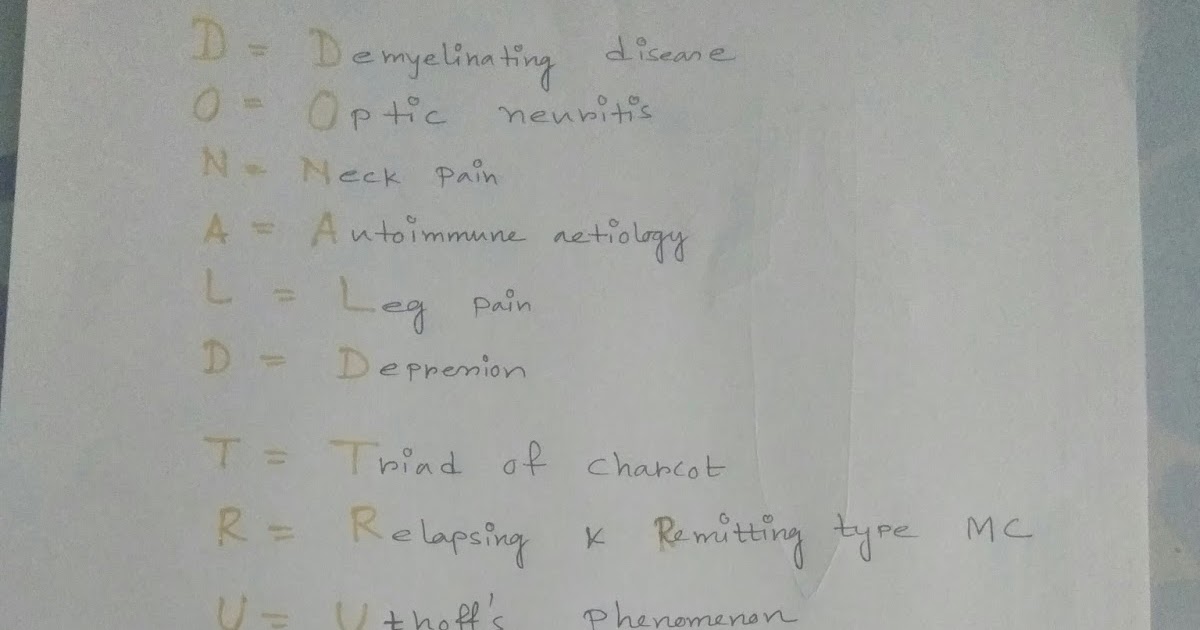 D = Demyelinating disease
O = Optic neuritis
N = Neck pain
A = Autoimmune aetiology
L = Leg pain
D = Depression
T = Triad of charcot
R = Relapsing & Remitting type MC
U = Uthoff's phenomenon